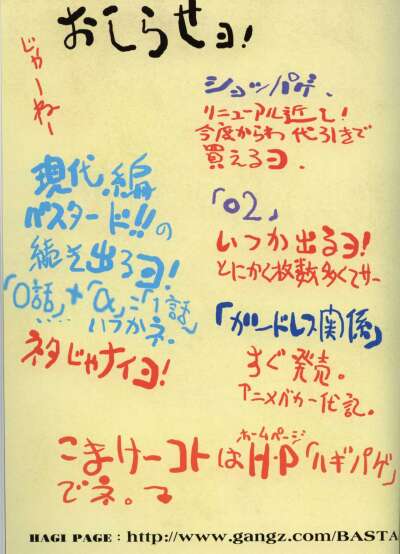 おしらせヨ!
じゃーねー
ショッパゲ.
リニューアル近し!
今度からわ代引きで
買えるヨ.
現代.編
バスタード!!の
続き出るヨ!
「0話」+「α」=「1話」
いつかネ.
ネタじゃナイヨ!
「02」
いつか出るヨ!
とにかく枚数多くてサー
「ガンドレス関係」
すぐ発売。
アニメバカ一代記。
ホームページ
こまけーコトはH・P「ハギパゲ」
でネ。
HAGI PAGE : http://www.gangz.com/BASTA